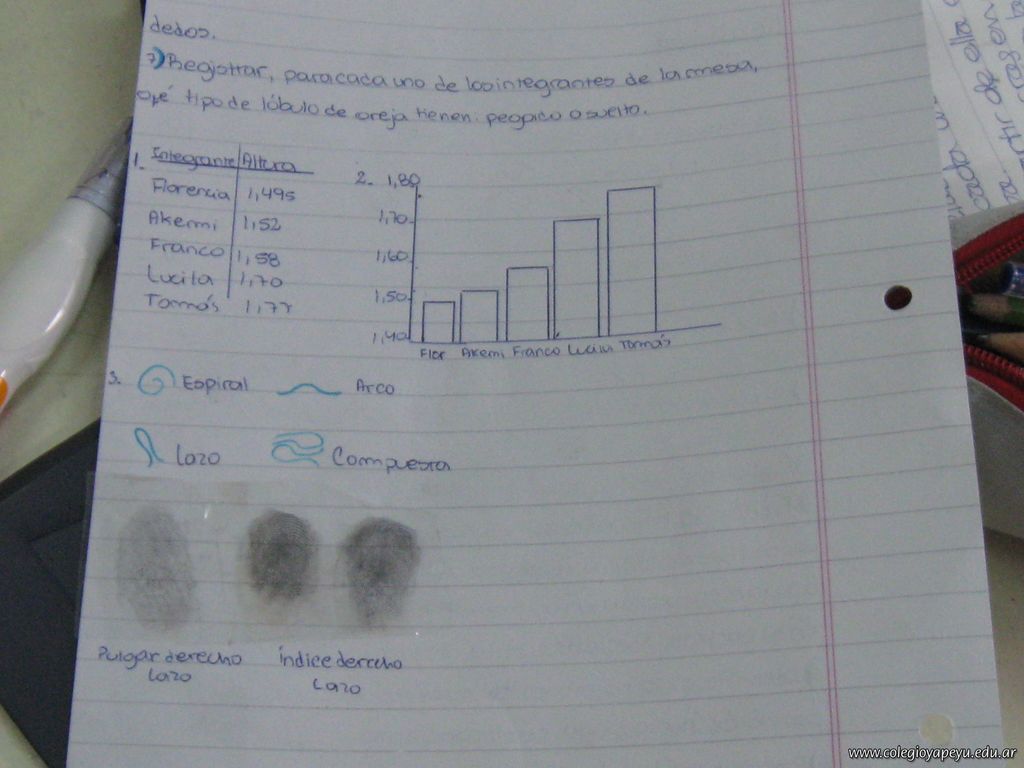 dedos.
7) Registrar, para cada uno de los integrantes de la mesa,
qué tipo de lóbulo de oreja tienen. pegado o suelto.
1. Integrante Altura
Florencia 1,495
Akemi 1,52
Franco 1,58
Lucila 1,70
Tomás 1,77
2. 1,80
1,70
1,60
1,50
1,40
Flor Akemi Franco Lucila Tomás
3. Espiral Arco
Lazo Compuesta
Pulgar derecho Índice derecho
Lazo Lazo
www.colegioyapeyu.edu.ar